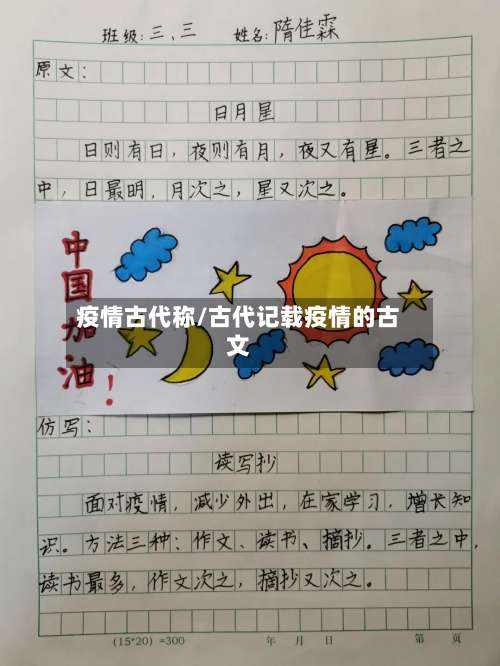 班级:三、三 姓名:隋佳霖
原文：
日月星
日则有日，夜则有月，夜又有星。三者之
中，日最明，月次之，星又次之。
中国加油！
疫情古代称/古代记载疫情的古
文
仿写：
读写抄
面对疫情，减少外出，在家学习，增长知
识。方法三种：作文、读书、摘抄。三者之中，
读书最多，作文次之，摘抄又次之。
(15*20) =300 年 月 日 第 页